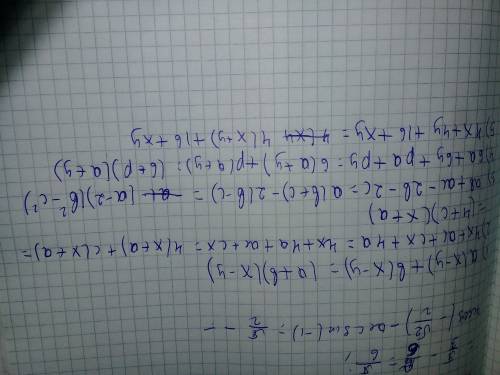 = π/3 - π/6 = π/6;
arccos(-√2/2) - arcsin(-1) = π/2 - -
1) a(x-y)+b(x-y) = (a+b)(x-y)
2) 4x+ac+cx+4a = 4x+4a+ac+cx = 4(x+a)+c(x+a)=
=(4+c)(x+a)
3) ab+ac-2b-2c = a(b+c)-2(b-c) = (a-2)(b²-c²)
6a+6y+pa+py = 6(a+y)+p(a+y); (6+p)(a+y)
4x+4y+16+xy = 4(x+y)+16+xy